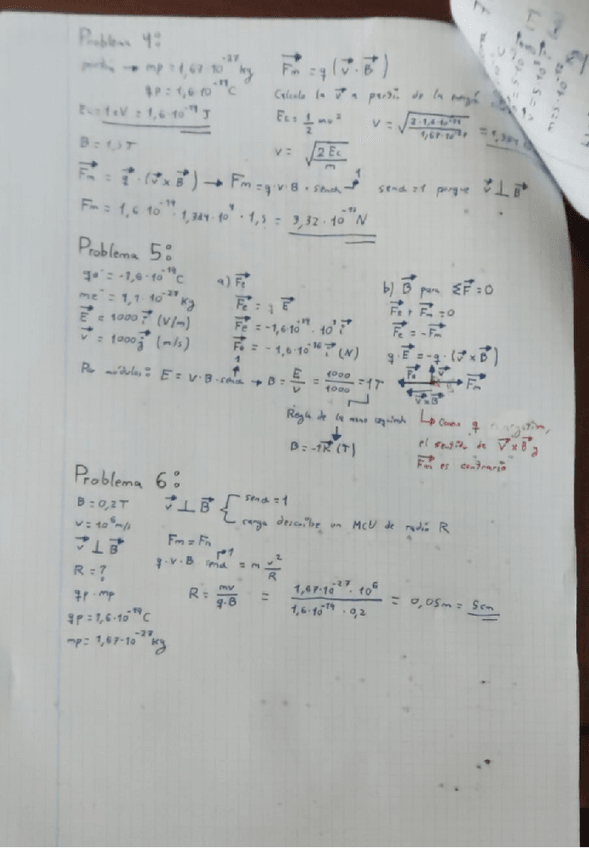 Problema 4:
mp = 1,67·10⁻²⁷ kg
qp = 1,6·10⁻¹⁹ C
Ec = 1 eV = 1,6·10⁻¹⁹ J
B = 1,5 T
Fm = q (v · B)
Calculo la v a partir de la
Ec = 1/2 mv²
v = √(2Ec/m)
Fm = q · (v x B) → Fm = q · v · B · senα → 1 senα = 1 porque v ⊥ B
Fm = 1,6·10⁻¹⁹ · 1,384·10⁴ · 1,5 = 3,32·10⁻¹⁵ N
Problema 5:
qe⁻ = -1,6·10⁻¹⁹ C
E = 1000 i (V/m)
v = 1000 j (m/s)
a) Fe
Fe = q E
Fe = -1,6·10⁻¹⁹ · 10³ i
Fe = -1,6·10⁻¹⁶ i (N)
b) B para ΣF = 0
Fe + Fm = 0
Fe = -Fm
q · E = -q · (v x B)
Por módulos: E = v · B · senα → 1 B = E/v = 1000/1000 = 1 T
Fe v Fm
v x B
Regla de la mano izquierda
B = -1 k (T)
Como q negativa,
el sentido de v x B y
Fm es contrario
Problema 6:
B = 0,2 T
v = 10⁶ m/s
v ⊥ B
R = ?
qp · mp
qp = 1,6·10⁻¹⁹ C
mp = 1,67·10⁻²⁷ kg
v ⊥ B
senα = 1
carga describe un MCU de radio R
Fm = Fn
q · v · B senα → 1 = m v²/R
R = mv/q·B = 1,67·10⁻²⁷ · 10⁶ / 1,6·10⁻¹⁹ · 0,2 = 0,05 m = 5 cm